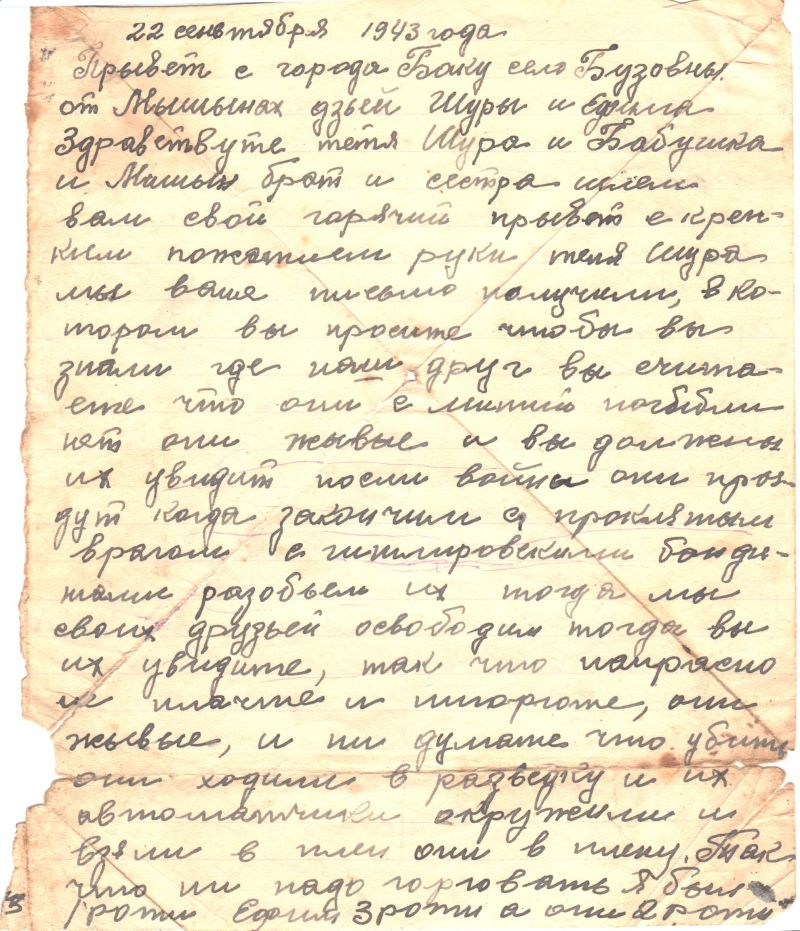 22 сеньтября 1943 года
Прывет с города Баку село Бузовны
от Мышынах дзьей Шуры и Ефима
Здравствуте тётя Шура и Бабушка
и Машын брат и сестра шлем
вам свой горячий прывет с креп-
ким пожатием руки тётя Шура
мы ваше письмо получили, в ко-
тором вы просите чтобы вы
знали где наш друг вы счита-
ете что они с митій погибли
нет они жывые и вы должны
их увидит посли войны они пры-
дут когда закончим с проклятым
врагом с гитлировскими банди-
тами разобьем их тогда мы
своих друзьей освободим тогда вы
их увидите, так что напрасно
ни плачте и ни горюте, они
жывые, и ни думате что убиты
они ходили в разведку и их
автоматчики окружили и
взяли в плен они в плену. Так
что ни надо горговать я был
роти Ефим 3 роти а они 2 роти